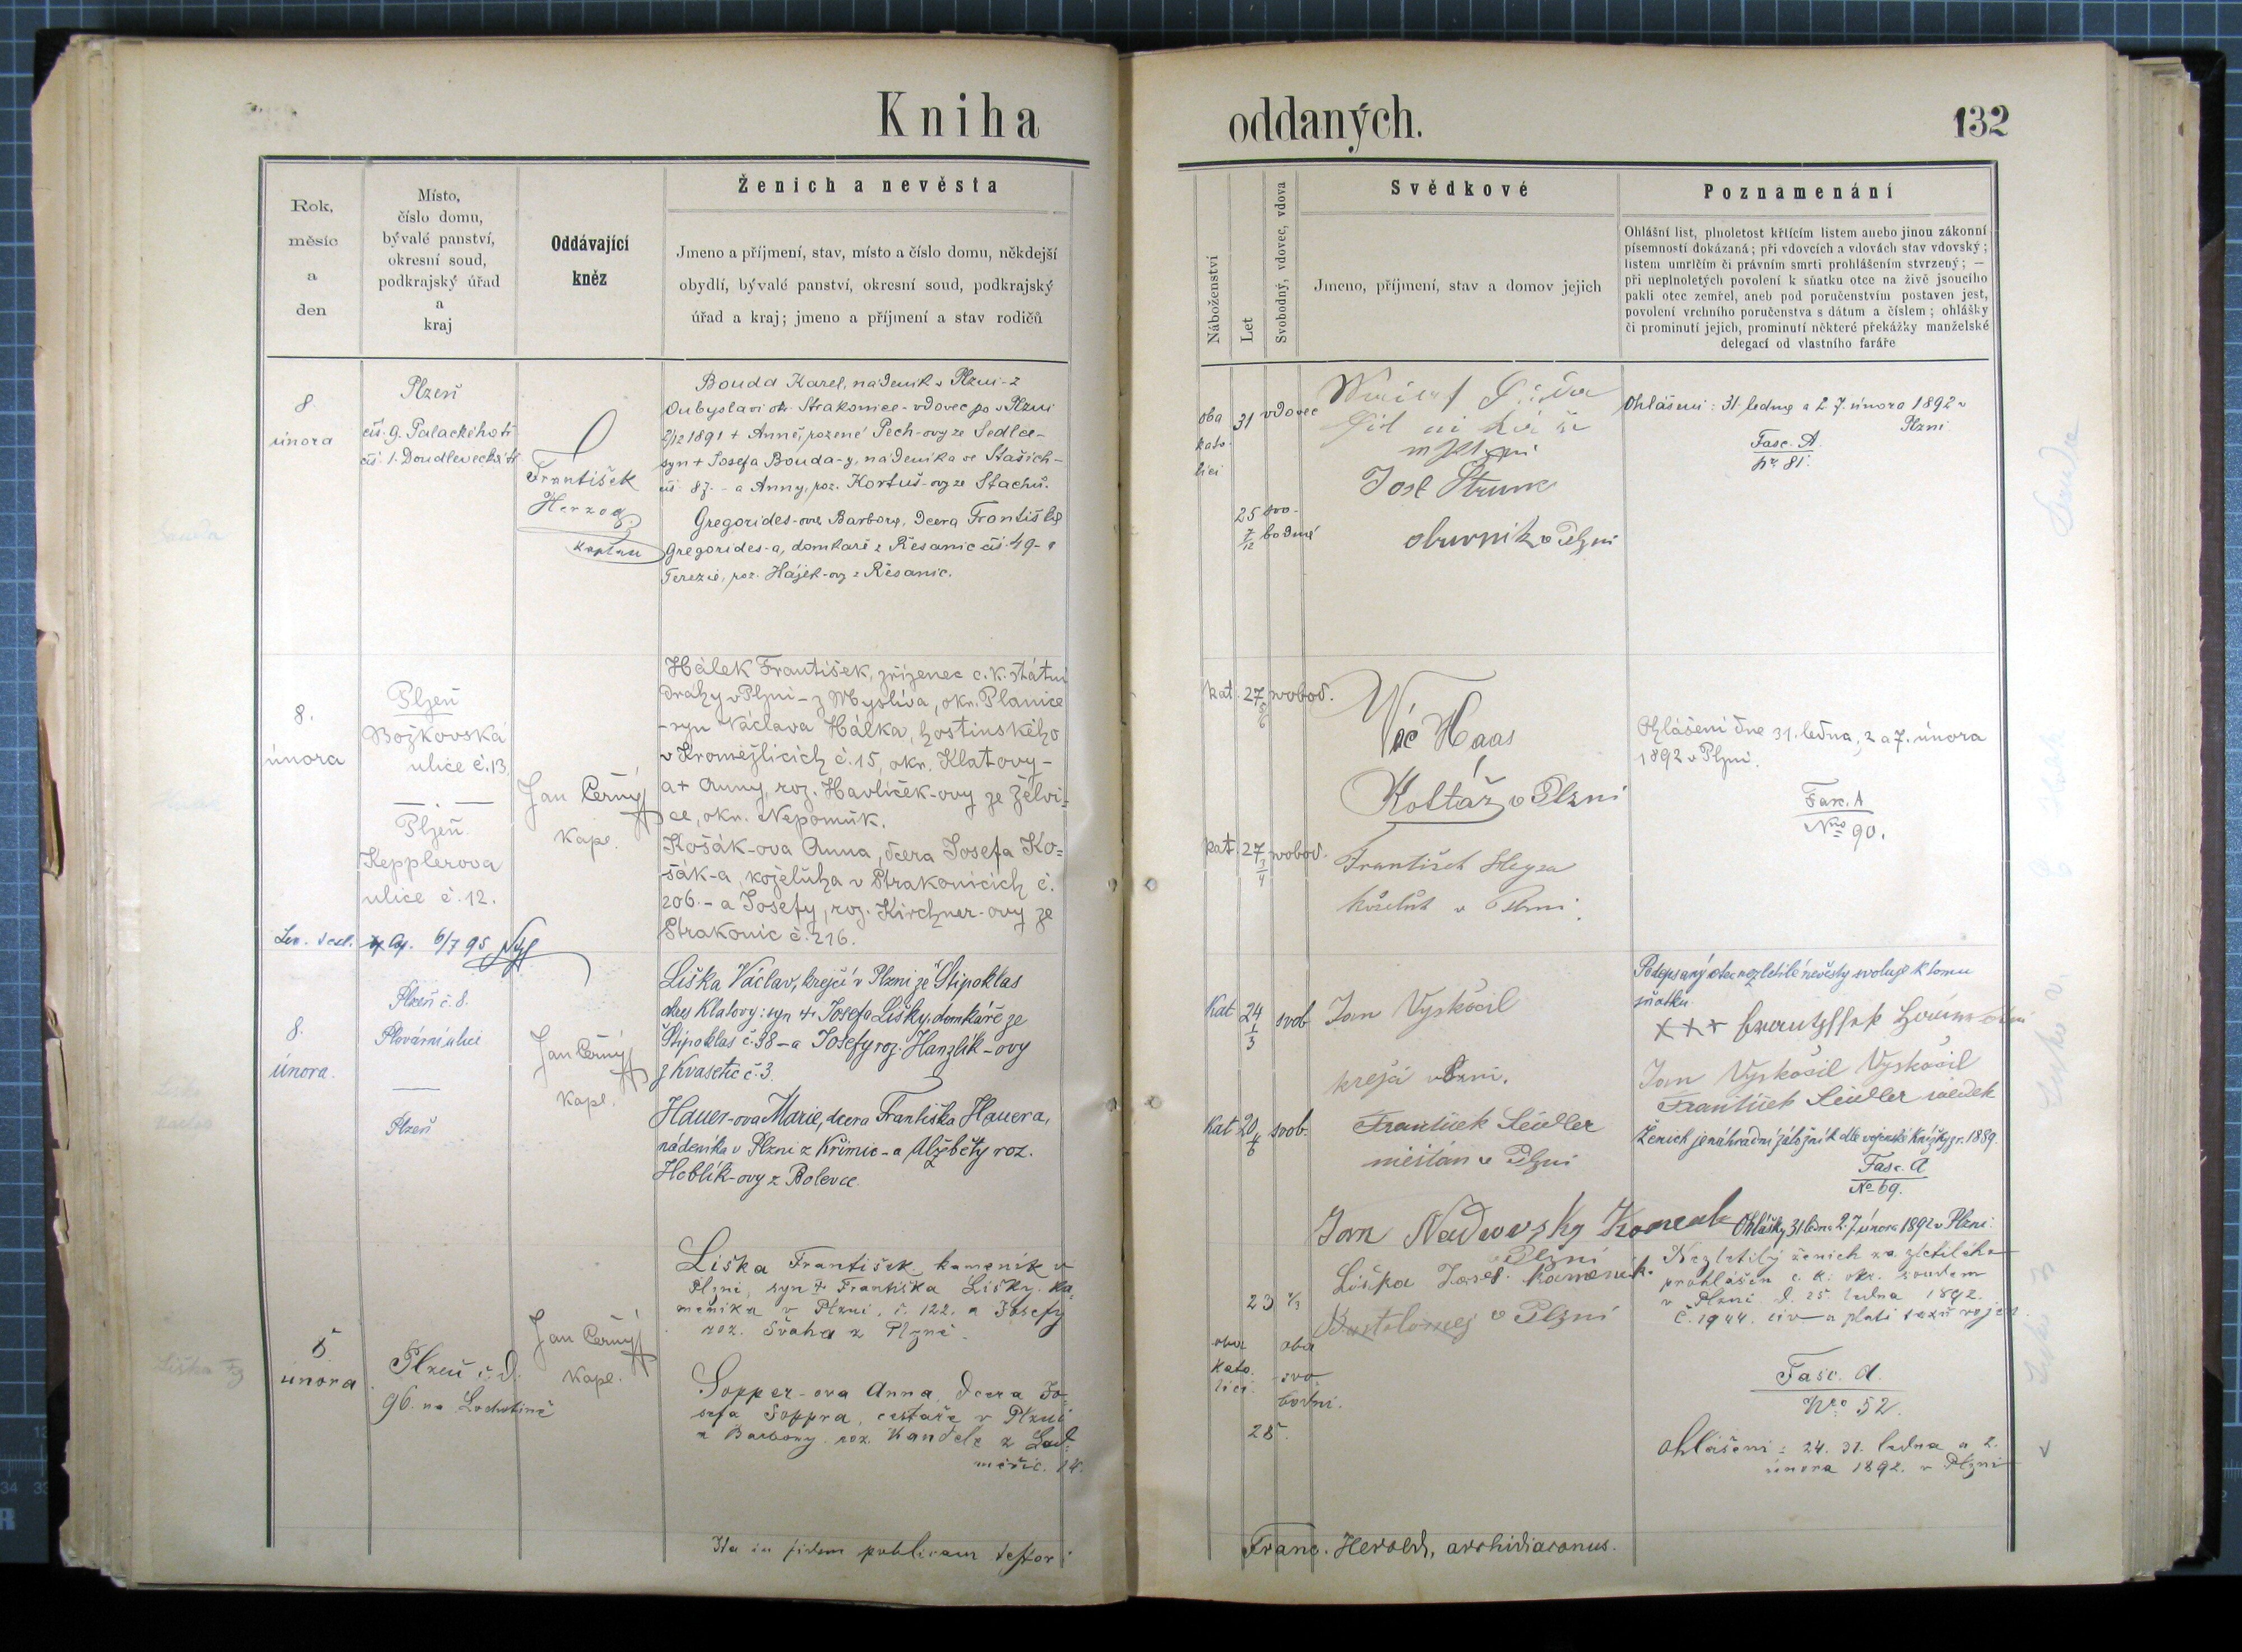 Kniha
oddaných.
132
Rok,
měsíc
a
den
Místo,
číslo domu,
bývalé panství,
okresní soud,
podkrajský úřad
a
kraj
Oddávající
kněz
Ženich a nevěsta
Jmeno a příjmení, stav, místo a číslo domu, někdejší
obydlí, bývalé panství, okresní soud, podkrajský
úřad a kraj; jmeno a příjmení a stav rodičů
Náboženství
Let
Svobodný, vdovec, vdova
Svědkové
Jmeno, příjmení, stav a domov jejich
Poznamenání
Ohlášní list, plnoletost křtícím listem anebo jinou zákonní
písemností dokázaná; při vdovcích a vdovách stav vdovský;
listem umrlčím či právním smrti prohlášením stvrzený; —
při neplnoletých povolení k sňatku otce na živě jsoucího
pakli otec zemřel, aneb pod poručenstvím postaven jest,
povolení vrchního poručenstva s dátum a číslem; ohlášky
či prominutí jejich, prominutí některé překážky manželské
delegací od vlastního faráře
8.
února
Plzeň
čís. 9. Palackého tř.
čís. 1. Doudlevecká tř.
František
Herzog
kaplan
Bouda Karel, nádeník v Plzni - z
Strakonice - vdovec po v Plzni
2/12 1891 + Anně, rozené Pech-ovy ze Sedlce -
syn + Josefa Bouda-y, nádeníka ve Stašich -
čís. 87. - a Anny, roz. Kortuš-ovy ze Stachů.
Gregorides-ova Barbora, dcera Františka
Gregorides-a, domkaře z Řesanic čís. 49 - a
Terezie, roz. Hájek-ovy z Řesanic.
oba
kato-
lici
31
vdovec
25
7/12
svo-
bodná
Josef
obuvník v Plzni
Ohlášeni: 31. ledna a 2. 7. února 1892 v
Plzni
Fasc. A.
Nr. 81.
8.
února
Plzeň
Božkovská
ulice č. 13.
Plzeň
Kepplerova
ulice č. 12.
Jan Černý
Kapl.
Hálek František, zřízenec c. k. státní
dráhy v Plzni - z Myslíva, okr. Planice
- syn Václava Hálka, hostinského
v Kroměžlicích č. 15, okr. Klatovy -
a + Anny, roz. Havlíček-ovy ze Želvi-
ce, okr. Nepomuk.
Košák-ova Anna, dcera Josefa Ko-
šák-a, koželuha v Strakonicích č.
206. - a Josefy, roz. Kirchner-ovy ze
Strakonic č. 216.
6/7 95
kat. 27 5/6 svobod.
kat. 27 3/4 svobod.
Vác Haas
Kolář v Plzni
František
koželuh v Plzni.
Ohlášení dne 31. ledna, 2 a 7. února
1892 v Plzni.
Fasc. A
Nro 90.
8.
února.
Plzeň č. 8.
Plovární ulici
Plzeň
Jan Černý
Kapl.
Liška Václav, krejčí v Plzni ze Štipoklas
okres Klatovy: syn + Josefa Lišky, domkáře ze
Štipoklas č. 38 - a Josefy roz. Hanzlík-ovy
z Kvasetic č. 3.
Hauer-ova Marie, dcera Františka Hauera,
nádeníka v Plzni z Křimic - a Alžběty roz.
Heblík-ovy z Bolevce.
Kat 24 1/3 svob
Kat 20 4/6 svob.
Jan Vyskočil
krejčí v Plzni.
František Seidler
měštan v Plzni
Podepsaný otec nezletilé nevěsty svoluje k tomu
sňatku.
+++
Jan Vyskočil Vyskočil
František Seidler svědek
Ženich je náhradní záložník dle vojenské knížky z r. 1889.
Fasc. A
No 69.
Ohlášky 31 ledna 2. 7. února 1892 v Plzni.
8
února
Plzeň č. d.
96. na Lochotíně
Jan Černý
Kapl.
Liška František, kameník v
Plzni, syn + Františka Lišky, ka-
meníka v Plzni, č. 122. a Josefy
roz. Svaha z Plzně.
Sopper-ova Anna, dcera Jo-
sefa Soppra, cestáře v Plzni
a Barbory roz. Kandele z Lud-
měřic. 14.
23 1/3
oba
kato.
lici
oba
svo-
bodni.
28
Jan
v Plzni
Liška Josef. kameník.
v Plzni
Nezletilý ženich za zletilého
prohlášen c. k. okr. soudem
v Plzni d. 25 ledna 1892.
č. 1944. civ - a platí taxu vojen.
Fasc. A.
Nro 52.
Ohlášeni: 24. 31. ledna a 2.
února 1892. v Plzni
Ita in fidem publicam testor:
Franc. Herold, archidiaconus.